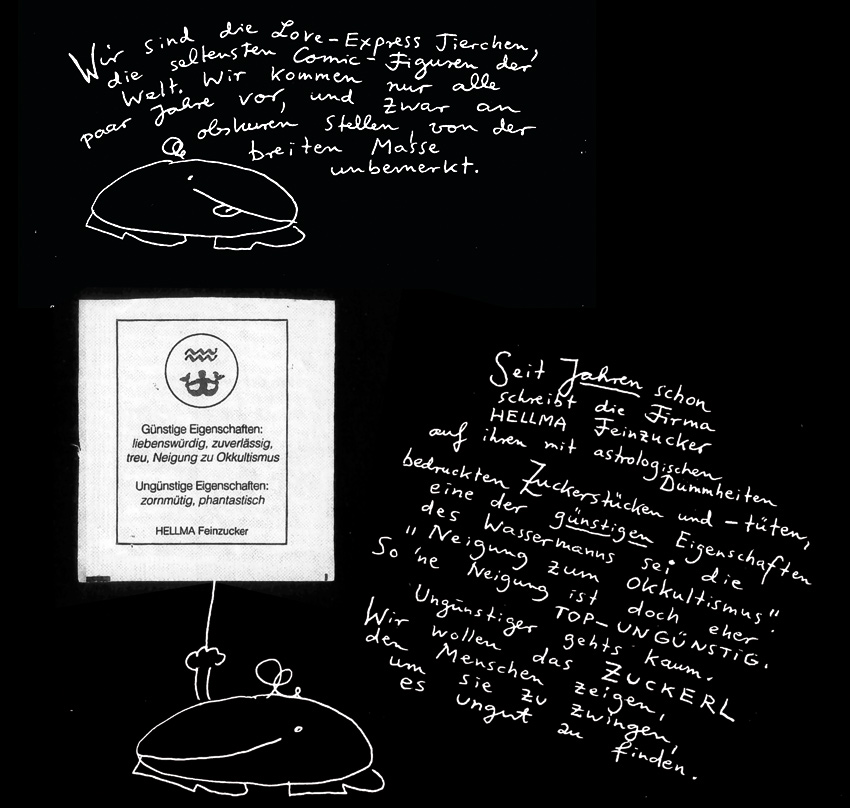 Wir sind die Love-Express Tierchen,
die seltensten Comic-Figuren der
Welt. Wir kommen nur alle
paar Jahre vor, und zwar an
obskuren Stellen, von der
breiten Masse
unbemerkt.
Günstige Eigenschaften:
liebenswürdig, zuverlässig,
treu, Neigung zu Okkultismus
Ungünstige Eigenschaften:
zornmütig, phantastisch
HELLMA Feinzucker
Seit Jahren schon
schreibt die Firma
HELLMA Feinzucker
auf ihren mit astrologischen Dummheiten
bedruckten Zuckerstücken und -tüten,
eine der günstigen Eigenschaften
des Wassermanns sei die
"Neigung zum Okkultismus".
So 'ne Neigung ist doch eher
TOP-UNGÜNSTIG.
Ungünstiger gehts kaum.
Wir wollen das ZUCKERL
den Menschen zeigen,
um sie zu zwingen,
es ungut zu finden.